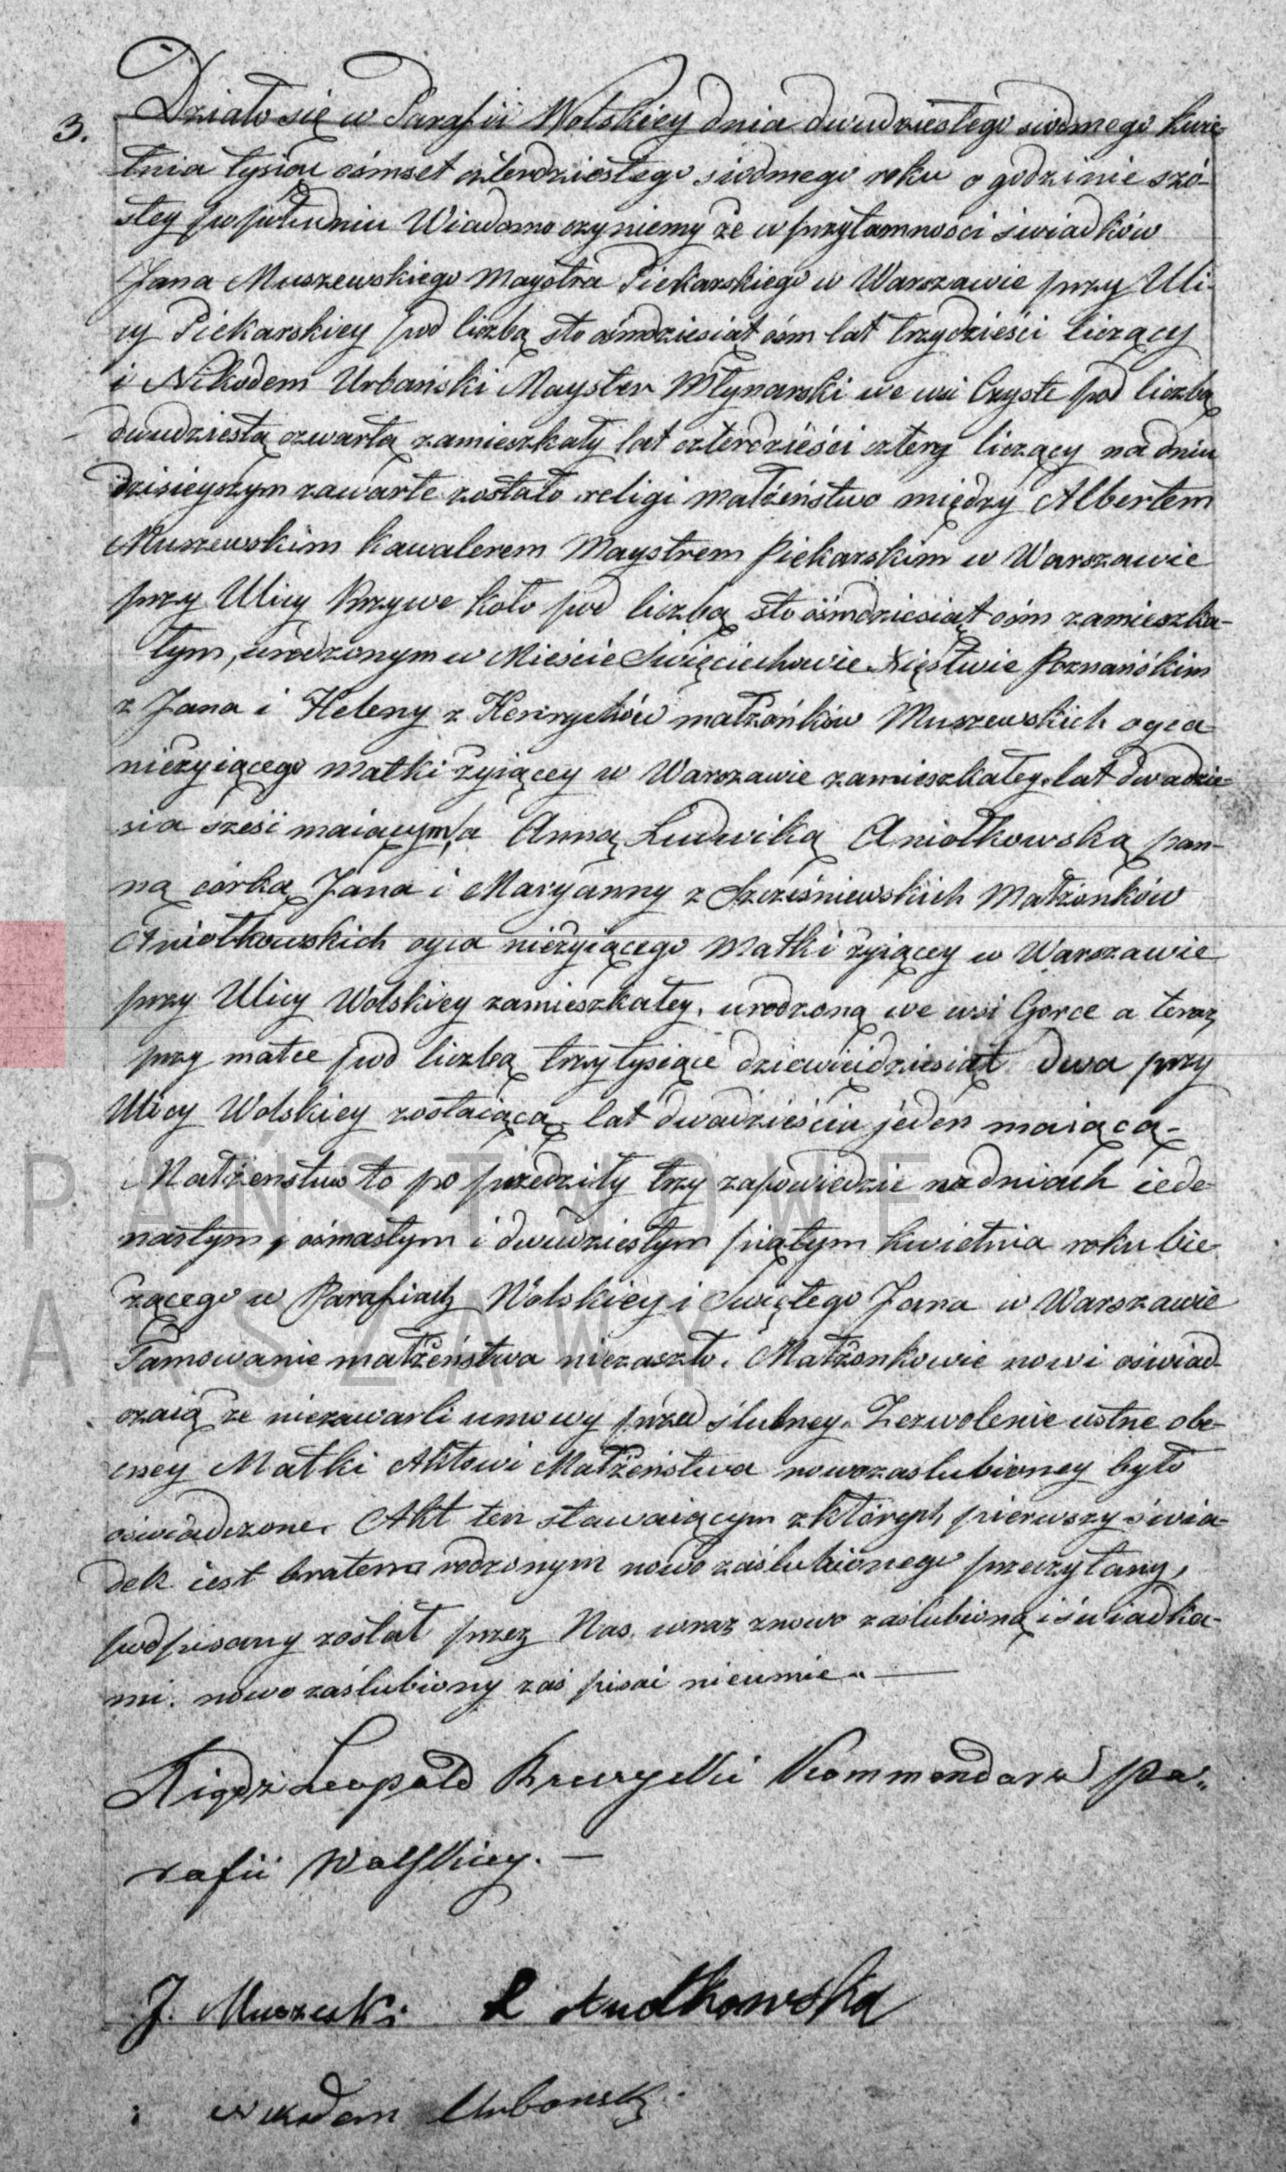 3. Działo się w Parafii Wolskiey dnia dwudziestego siodmego kwie-
tnia tysiąc ośmset czterdziestego siodmego roku o godzinie szó-
stey po południu Wiadomo czyniemy że w przytomnosci swiadków
Jana Muszewskiego Maystra Piekarskiego w Warszawie przy Uli-
cy Piekarskiey pod liczbą sto ośmdziesiąt ośm lat trzydzieści liczący
i Nikodem Urbański Mayster Młynarski we wsi Czyste pod liczbą
dwudziestą czwartą zamieszkały lat czterdzieści cztery liczący na dniu
dzisieyszym zawarte zostało religi małżeństwo między Albertem
Muszewskim kawalerem Maystrem Piekarskim w Warszawie
przy Ulicy Krzywe koło pod liczbą sto ośmdziesiąt ośm zamieszka-
łym, urodzonym w Mieście Swięciechowie Xięstwie Poznańskim
z Jana i Heleny z małżonków Muszewskich oyca
nieżyiącego matki żyiącey w Warszawie zamieszkałey, lat dwadzie-
scia sześć maiącym, a Anną Ludwiką Aniołkowską pan-
ną córką Jana i Maryanny z Szcześniewskich Małżonków
Aniołkowskich oyca nieżyiącego Matki żyiącey w Warszawie
przy Ulicy Wolskiey zamieszkałey, urodzoną we wsi Gorce a teraz
przy matce pod liczbą trzy tysiące dziewięćdziesiąt dwa przy
Ulicy Wolskiey zostaiącą lat dwadzieścia jeden maiącą -
Małżeństwo to po przedziły trzy zapowiedzie w dniach iede-
nastym, ośmastym i dwudziestym piątym kwietnia roku bie-
żącego w Parafiach Wolskiey i Swiętego Jana w Warszawie
Tamowanie małżeństwa niezaszło. Małżonkowie nowi oświad-
czaią że niezawarli umowy przed ślubney. Zezwolenie ustne obe-
cney Matki Aktowi Małżeństwa nowozaslubioney było
oświadczone. Akt ten stawaiącym z których pierwszy świa-
dek iest bratem rodzonym nowo zaślubionego przeczytany,
podpisany został przez Nas wraz z nowo zaślubioną i świadka-
mi. nowo zaślubiony zaś pisać nieumie. —
Xiądz Leopold Kommendarz pa-
rafii Wolskiey. —
J. Muszeski L
i Nikodem Urbanski
PAŃSTWOWE
ARSZAWY